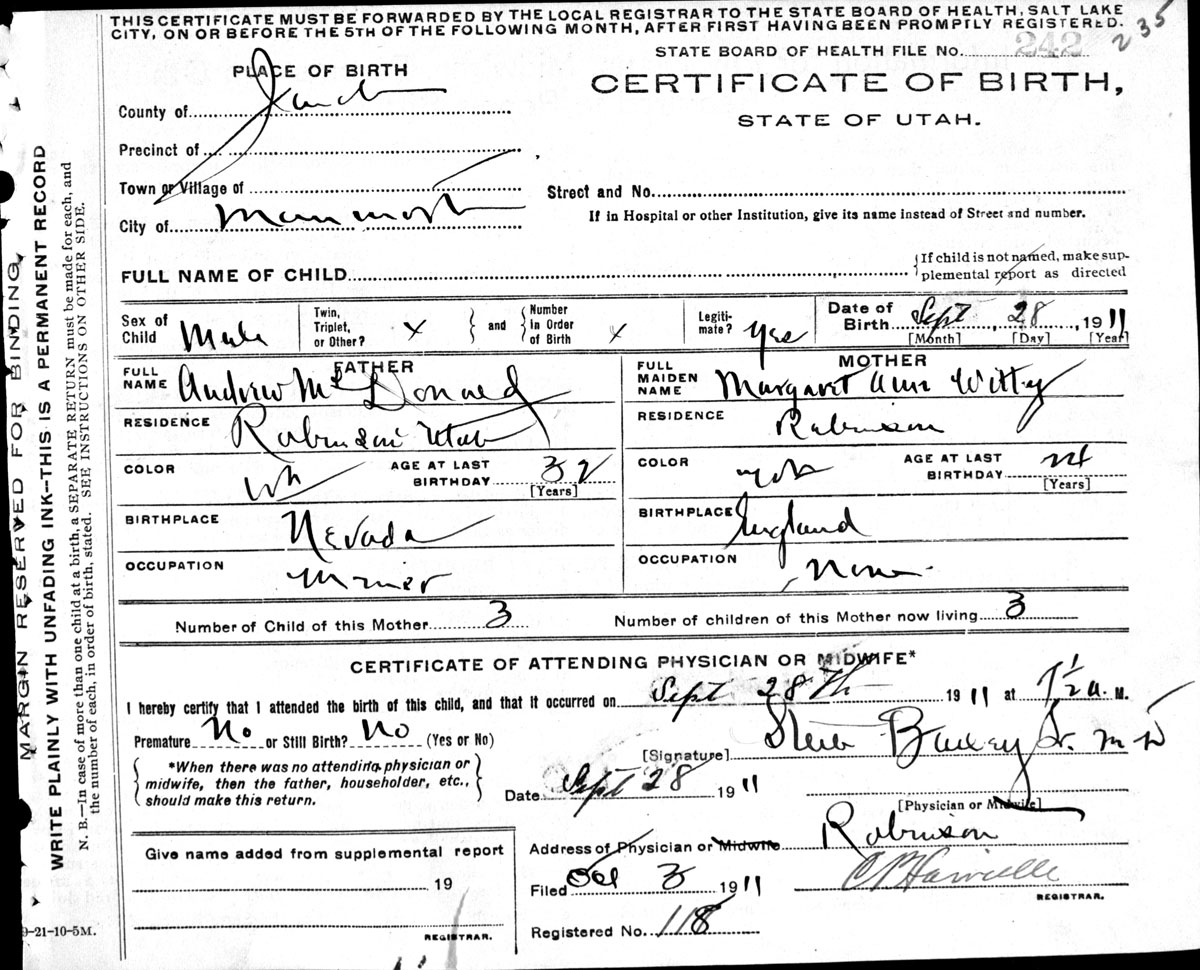 THIS CERTIFICATE MUST BE FORWARDED BY THE LOCAL REGISTRAR TO THE STATE BOARD OF HEALTH, SALT LAKE
CITY, ON OR BEFORE THE 5TH OF THE FOLLOWING MONTH, AFTER FIRST HAVING BEEN PROMPTLY REGISTERED.
235
STATE BOARD OF HEALTH FILE NO. 242
PLACE OF BIRTH
CERTIFICATE OF BIRTH,
STATE OF UTAH.
County of
Precinct of
Town or Village of
Street and No.
City of Mammoth
If in Hospital or other Institution, give its name instead of Street and number.
FULL NAME OF CHILD
If child is not named, make sup-
plemental report as directed
Sex of Child Male
Twin, Triplet, or Other? x
and Number in Order of Birth x
Legiti-mate? yes
Date of Birth Sept, 28, 1911
[Month] [Day] [Year]
FATHER
FULL NAME Andrew McDonald
MOTHER
FULL MAIDEN NAME Margaret Ann Witty
RESIDENCE Robinson Utah
RESIDENCE Robinson
COLOR wh
AGE AT LAST BIRTHDAY 32
[Years]
COLOR wh
AGE AT LAST BIRTHDAY 24
[Years]
BIRTHPLACE Nevada
BIRTHPLACE England
OCCUPATION Miner
OCCUPATION None
Number of Child of this Mother 3
Number of children of this Mother now living 3
CERTIFICATE OF ATTENDING PHYSICIAN OR MIDWIFE*
I hereby certify that I attended the birth of this child, and that it occurred on Sept 28th 1911 at 1/2 a. M.
Premature No or Still Birth? No (Yes or No)
[Signature] Steele Bailey Jr. MD
*When there was no attending physician or
midwife, then the father, householder, etc.,
should make this return.
Date Sept 28 1911
[Physician or Midwife]
Address of Physician or Midwife Robinson
Give name added from supplemental report
19
REGISTRAR.
Filed Oct 3 1911
REGISTRAR.
Registered No. 118
9-21-10-5M.
MARGIN RESERVED FOR BINDING.
WRITE PLAINLY WITH UNFADING INK—THIS IS A PERMANENT RECORD
N. B.—In case of more than one child at a birth, a SEPARATE RETURN must be made for each, and
the number of each, in order of birth, stated. SEE INSTRUCTIONS ON OTHER SIDE.